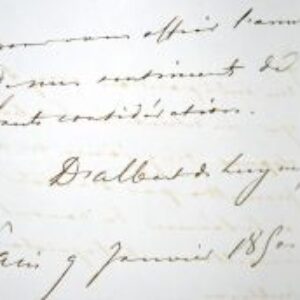 pour vous offrir l'assu
de mes sentiments de
haute considération.
D'albert de Luynes
Paris 9 Janvier 185